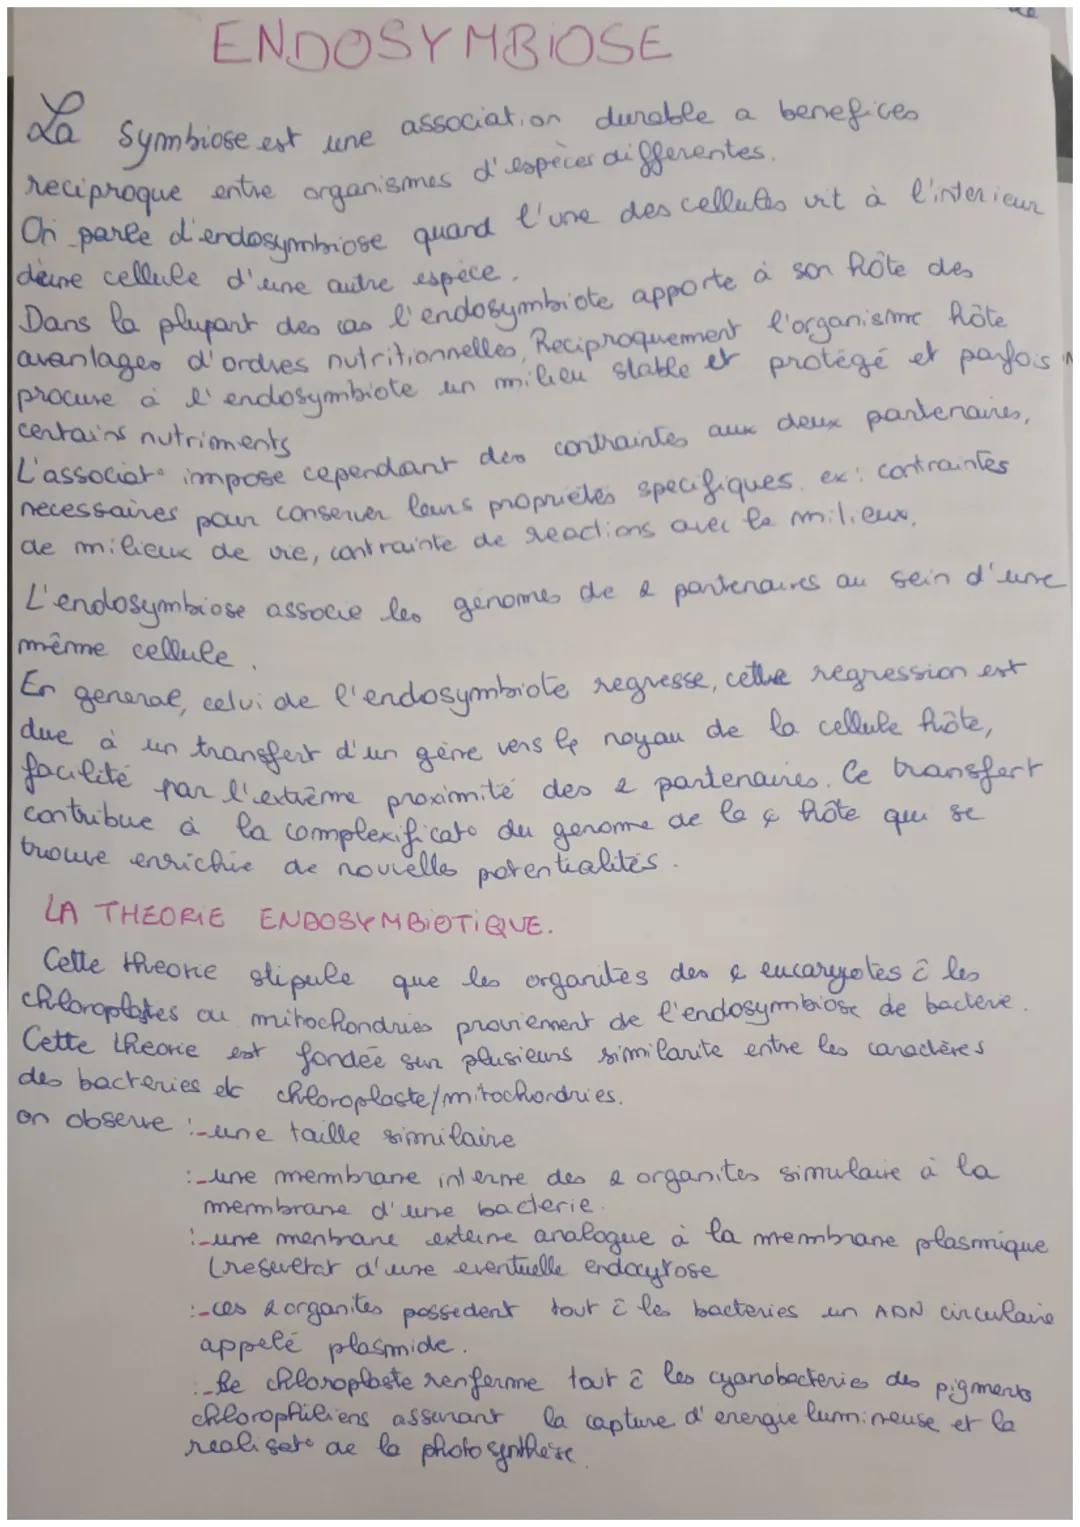 ENDOSYMBIOSE
La symbiose est une association durable a benefices
reciproque entre organismes d'espèces differentes.
On parle d'endosymbiose quand l'une des cellules vit à l'interieur
d'une cellule d'une autre espèce.
Dans la plupart des cas l'endosymbiote apporte à son hôte des
avantages d'ordres nutritionnelles, Reciproquement l'organisme hôte
procure à l'endosymbiote un milieu stable et protégé et parfois
certains nutriments
L'associat° impose cependant des contraintes aux deux partenaires,
necessaires pour conserver leurs propriétés specifiques. ex: contraintes
de milieux de vie, contrainte de reactions avec le milieux.
L'endosymbiose associe les génomes de 2 partenaires au sein d'une
même cellule.
En general, celui de l'endosymbiote regresse, cette regression est
due à un transfert d'un gène vers le noyau de la cellule hôte,
facilité par l'extrême proximité des 2 partenaires. Ce transfert
contribue à la complexificat° du genome de la ¢ hôte qui se
trouve enrichie de nouvelles potentialités.
LA THEORIE ENDOSYMBIOTIQUE.
Cette theorie stipule que les organites des ¢ eucaryotes c̄ les
chloroplastes ou mitochondries proviennent de l'endosymbiose de bacterie.
Cette theorie est fondée sur plusieurs similarite entre les caractères
des bacteries et chloroplaste/mitochondries.
on observe :-une taille similaire
:-une membrane interne des 2 organites simulaire à la
membrane d'une bacterie.
:-une menbrane externe analogue à la membrane plasmique
(resultat d'une eventuelle endocytose
:-ces 2 organites possedent tout c̄ les bacteries un ADN circulaire
appelé plasmide.
:-le chloroplaste renferme tout c̄ les cyanobacteries des pigments
chlorophiliens assurant la capture d'energie lumineuse et la
realisat° de la photosynthèse.